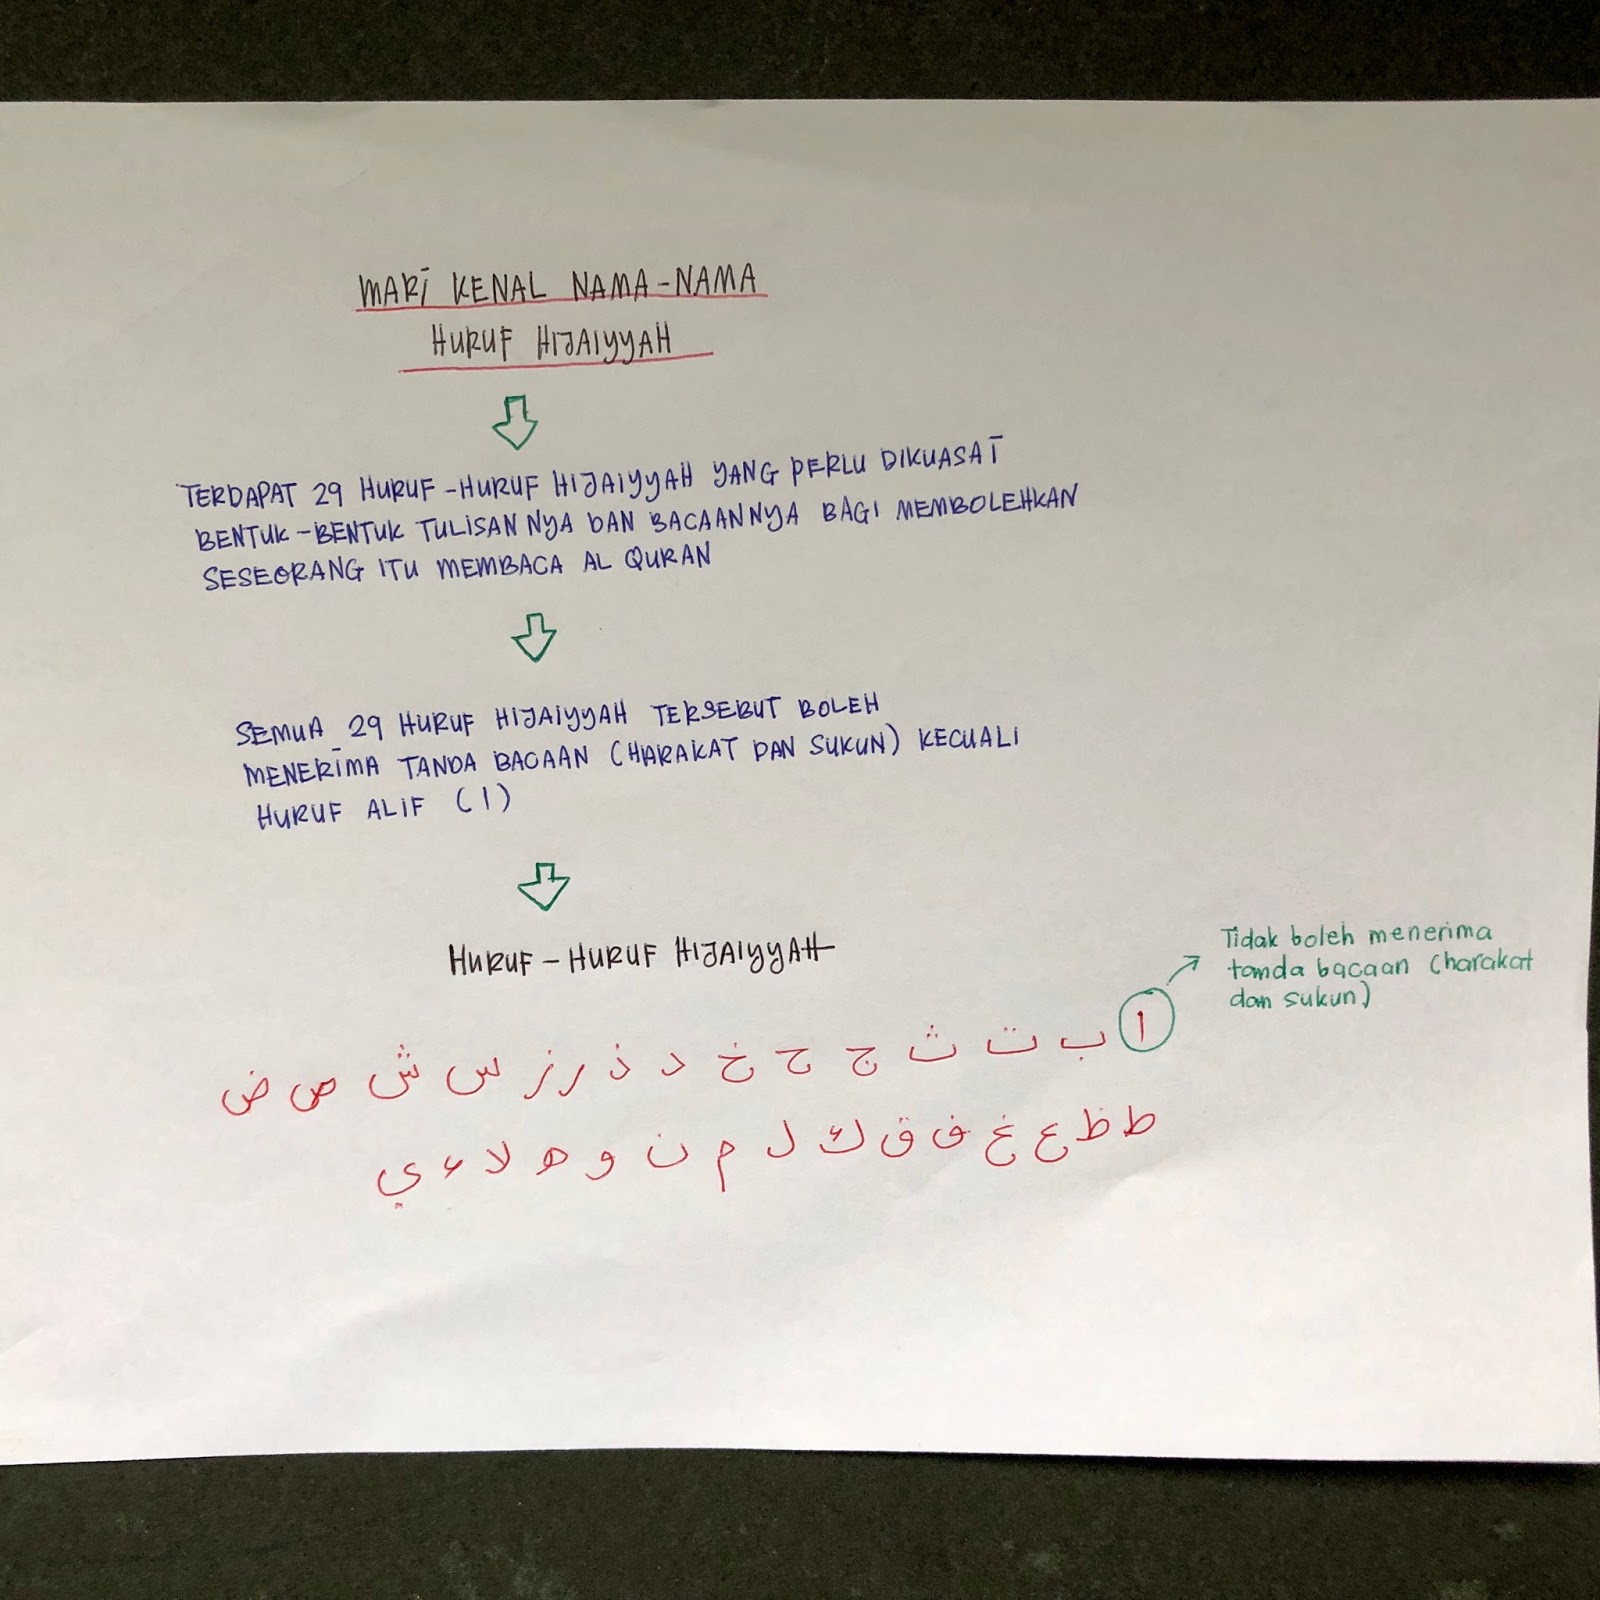 MARI KENAL NAMA-NAMA
HURUF HIJAIYYAH
TERDAPAT 29 HURUF-HURUF HIJAIYYAH YANG PERLU DIKUASAI
BENTUK-BENTUK TULISANNYA DAN BACAANNYA BAGI MEMBOLEHKAN
SESEORANG ITU MEMBACA AL QURAN
SEMUA 29 HURUF HIJAIYYAH TERSEBUT BOLEH
MENERIMA TANDA BACAAN (HARAKAT DAN SUKUN) KECUALI
HURUF ALIF (ا)
HURUF-HURUF HIJAIYYAH
Tidak boleh menerima
tanda bacaan (harakat
dan sukun)
ا ب ت ث ج ح خ د ذ ر ز س ش ص ض
ط ظ ع غ ف ق ك ل م ن و ه لا ء ي